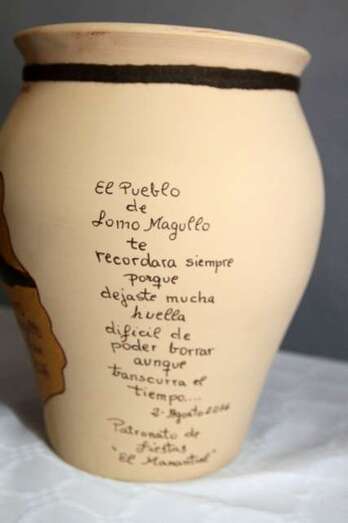 El Pueblo
de
Lomo Magullo
te
recordara siempre
porque
dejaste mucha
huella
dificil de
poder borrar
aunque
transcurra el
tiempo....
2-Agosto 2014
Patronato de
Fiestas
"El Manantial"